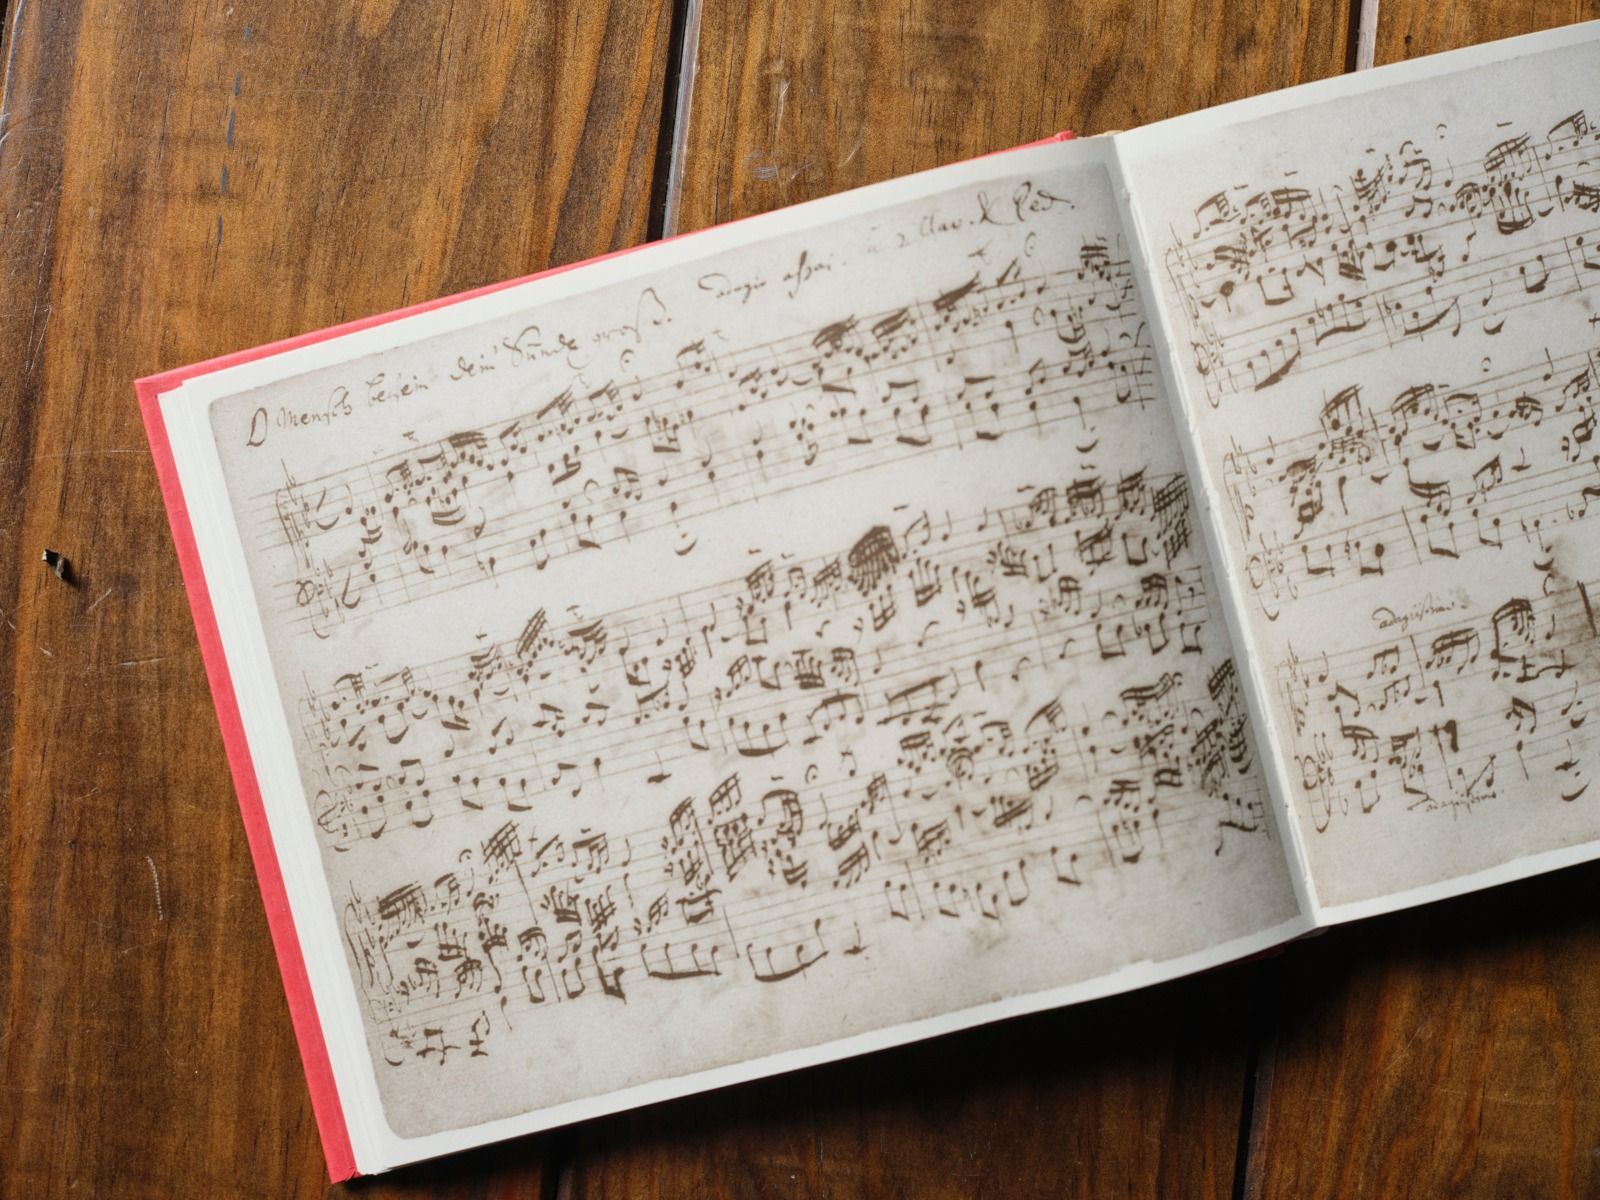 O Mensch bewein dein Sünde groß. adagio assai. à 2 Clav. & Ped.
adagissimo
adagissimo.